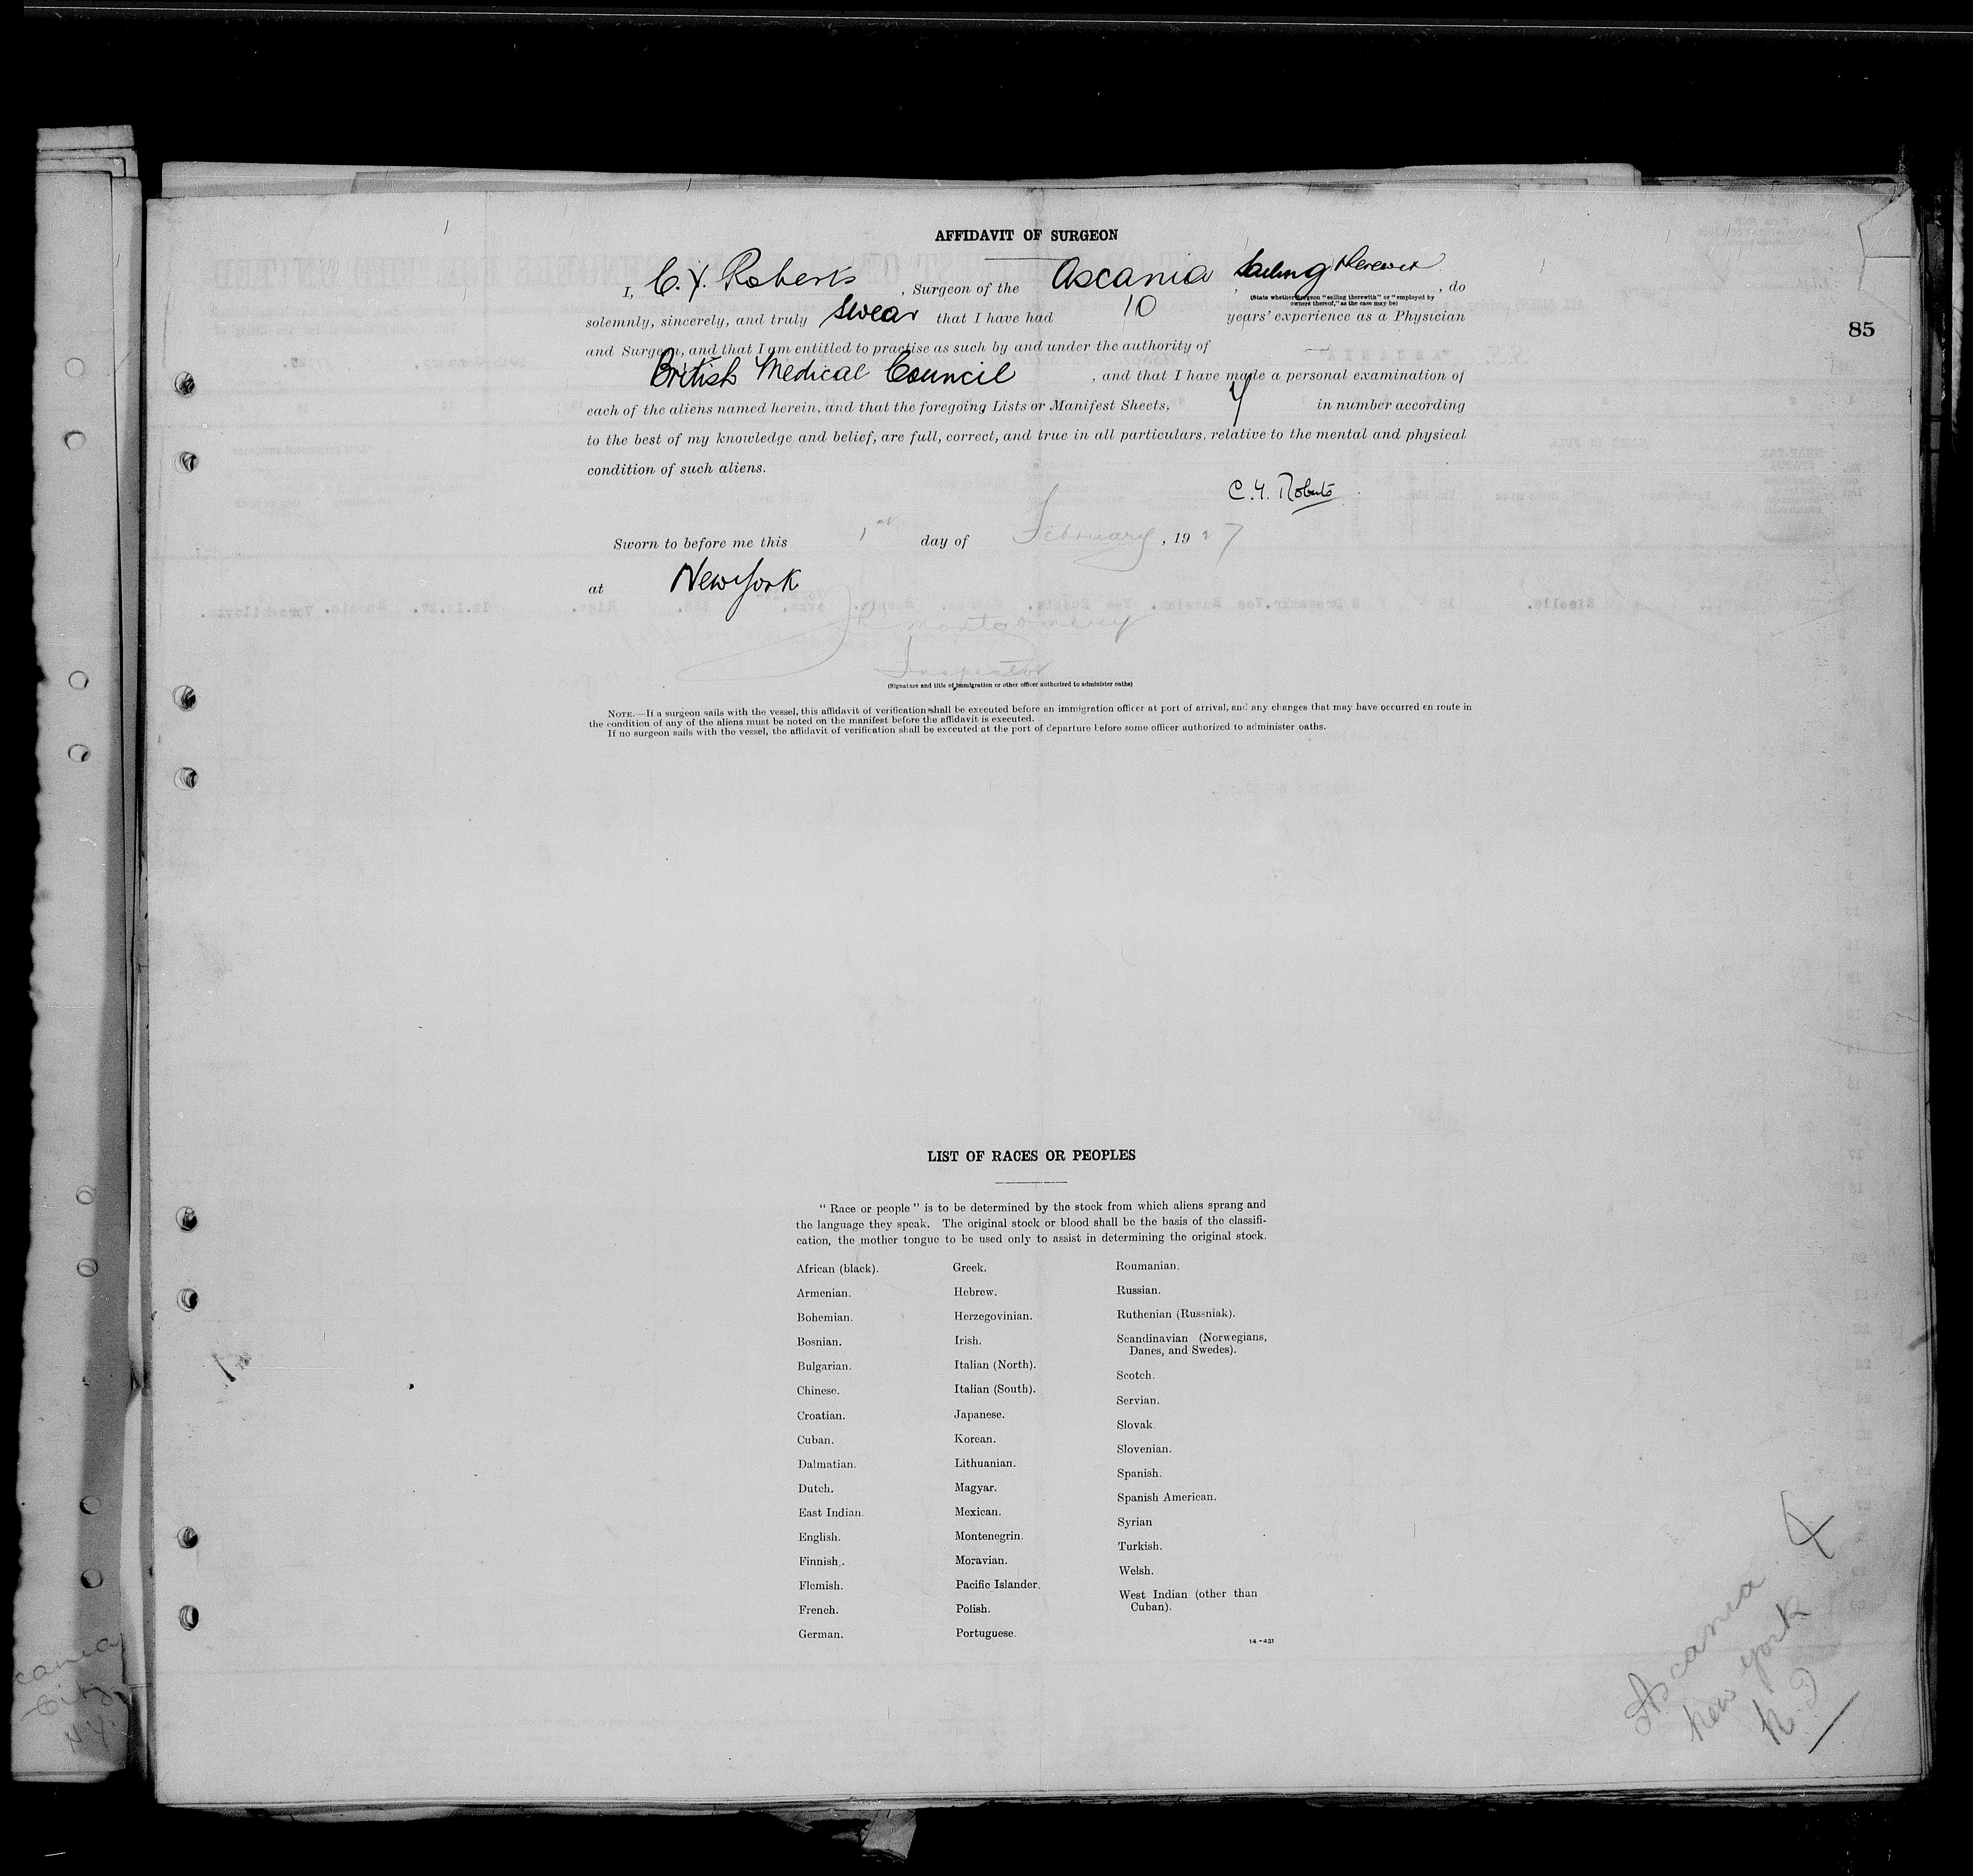 AFFIDAVIT OF SURGEON
I, C. Y. Roberts, Surgeon of the Ascania, Sailing therewith, do
(State whether Surgeon "sailing therewith" or "employed by
owners thereof," as the case may be)
solemnly, sincerely, and truly swear that I have had 10 years' experience as a Physician
85
and Surgeon, and that I am entitled to practise as such by and under the authority of
British Medical Council, and that I have made a personal examination of
each of the aliens named herein, and that the foregoing Lists or Manifest Sheets, 4 in number according
to the best of my knowledge and belief, are full, correct, and true in all particulars, relative to the mental and physical
condition of such aliens.
C. Y. Roberts
Sworn to before me this 1st day of February, 1927
at New York
Montgomery
Inspector
(Signature and title of immigration or other officer authorized to administer oaths)
NOTE.—If a surgeon sails with the vessel, this affidavit of verification shall be executed before an immigration officer at port of arrival, and any changes that may have occurred en route in
the condition of any of the aliens must be noted on the manifest before the affidavit is executed.
If no surgeon sails with the vessel, the affidavit of verification shall be executed at the port of departure before some officer authorized to administer oaths.
LIST OF RACES OR PEOPLES
"Race or people" is to be determined by the stock from which aliens sprang and
the language they speak. The original stock or blood shall be the basis of the classifi-
cation, the mother tongue to be used only to assist in determining the original stock.
African (black).
Armenian.
Bohemian.
Bosnian.
Bulgarian.
Chinese.
Croatian.
Cuban.
Dalmatian.
Dutch.
East Indian.
English.
Finnish.
Flemish.
French.
German.
Greek.
Hebrew.
Herzegovinian.
Irish.
Italian (North).
Italian (South).
Japanese.
Korean.
Lithuanian.
Magyar.
Mexican.
Montenegrin.
Moravian.
Pacific Islander.
Polish.
Portuguese.
Roumanian.
Russian.
Ruthenian (Russniak).
Scandinavian (Norwegians,
Danes, and Swedes).
Scotch.
Servian.
Slovak.
Slovenian.
Spanish.
Spanish American.
Syrian
Turkish.
Welsh.
West Indian (other than
Cuban).
14-431
Ascania
New York
cania
City
N.Y.